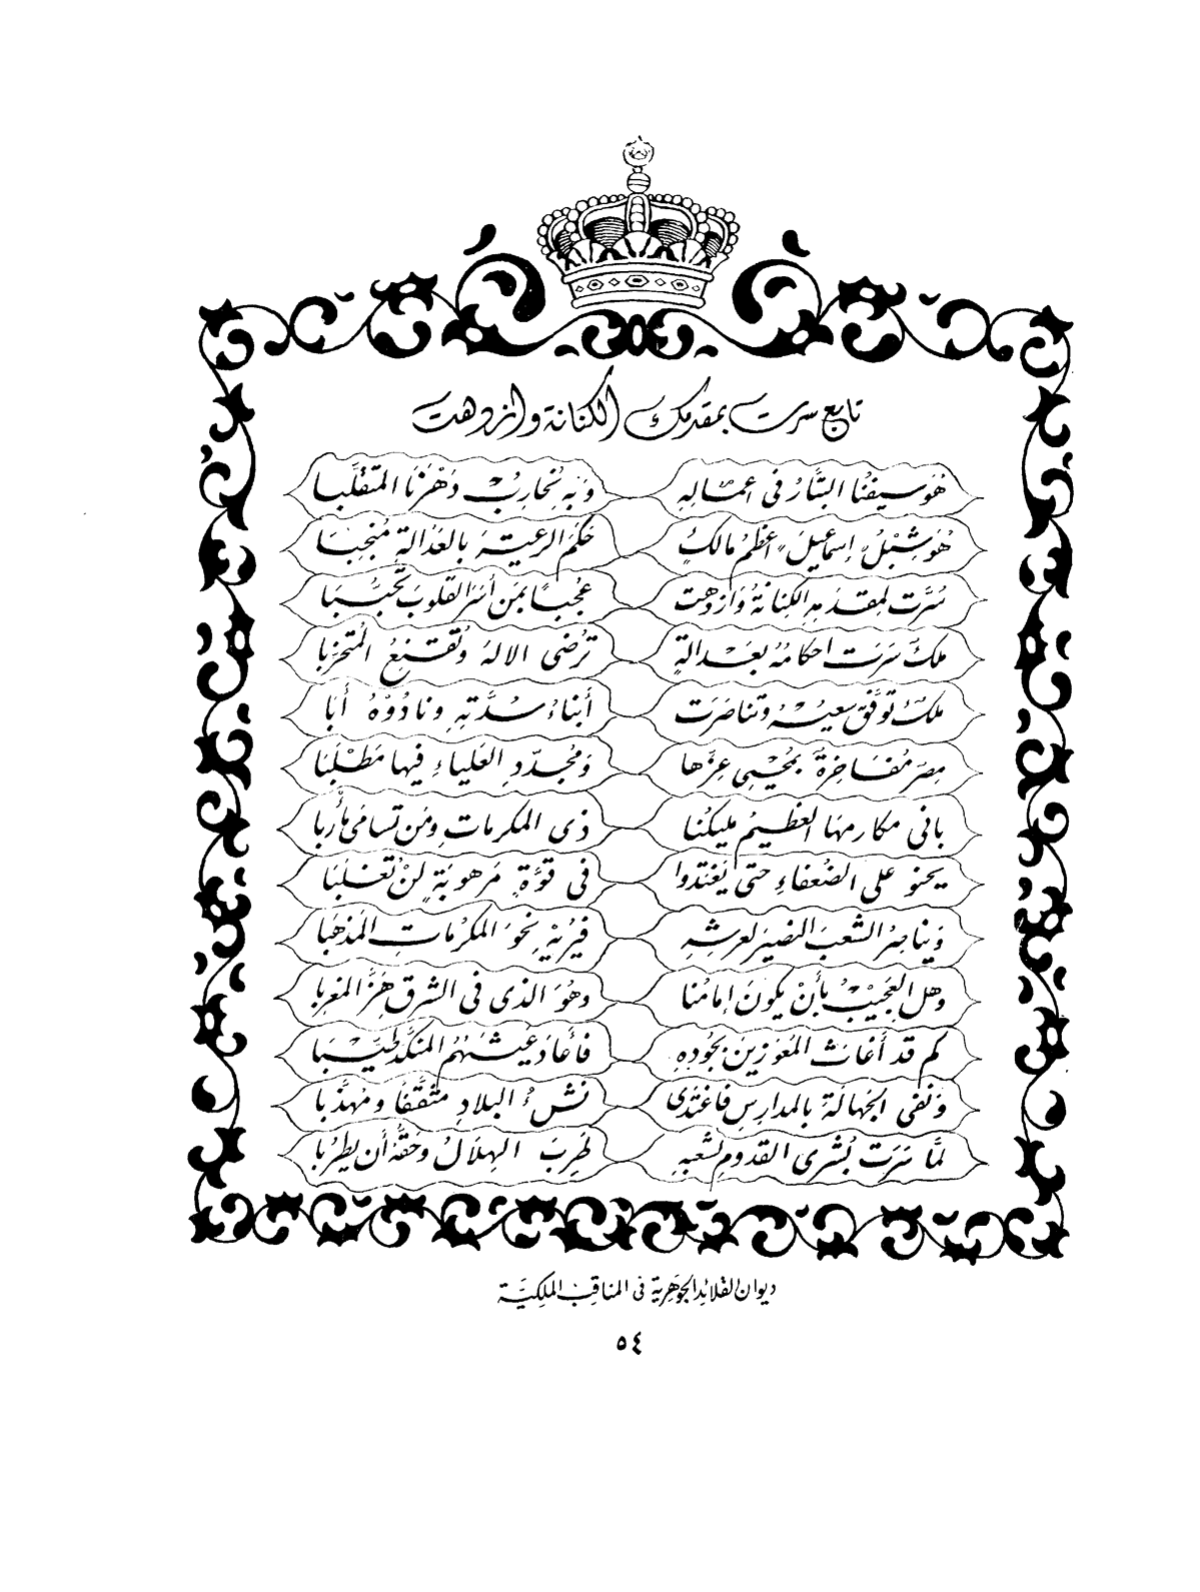 تابع سرت بمقدمك الكنانة وازدهت
هُوَ سيفُنا البتَّارُ فى اعمالِهِ وَبه نُحَارِبُ دَهْرَنا المتقلَّبا
هُوَ شِبْلُ " إسماعيلَ " اعظمُ مالكٍ حَكمَ الرعيةَ بالعَدالةِ مُنجِبَا
سُرَّت لمِقدَمِهِ الكِنانةُ وَازدهت عُجْبًا بمَن أسَرَ القلوبَ تَحَبُّبَا
ملكٌ سَرَت احكامُهُ بعَدالةٍ تُرْضى الالهَ وتُقنِعُ المتحزِّبا
ملكٌ توَفَّقَ سعيُهُ وتناصَرَت أبناءُ سُدَّتهِ ونادُوْهُ أبَا
مِصرٌ مُفَاخِرَةٌ بمُحْيِى عِزِّها وَمُجدّدِ العَلياءِ فيها مَطْلَبَا
بانى مكارمِهَا العظيمُ مليكُنا ذى المكرماتِ ومَن تسامَى مأرُبا
يحنو على الضعفاءِ حتى يَغتدُوا فى قُوَّةٍ مَرهوبَةٍ لنْ تُغلَبَا
وَيناصِرُ الشعبَ النصيرَ لعرشِهِ فيُريْهِ نحوَ المكرُماتِ المذهَبا
وهل العَجيْبُ بأنْ يكونَ إمامُنا وهُوَ الذى فى الشرقِ هَزَّ المغرِبا
كم قد أغاثَ المُعْوَزينَ بجُودِهِ فأعادَ عيشَهُمُ المنكَّدَ طيِّبَا
وَنفى الجَهالةَ بالمدارِسِ فاغتدَى نشءُ البلادِ مثقَّفًا ومهذَّبا
لمَّا سَرَت بُشرى القدومِ لشعبِهِ طَرِبَ الهِلاَلُ وحَقُّهُ أن يطرَبا
ديوان القلائد الجوهرية فى المناقب الملكيَّة
٥٤